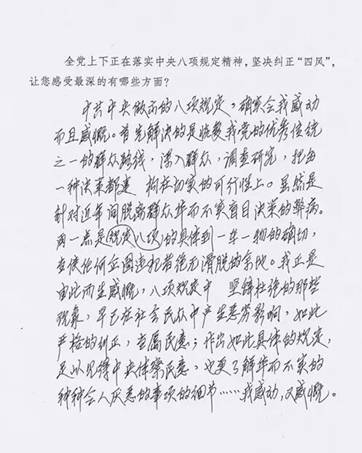 全党上下正在落实中央八项规定精神，坚决纠正“四风”，
让您感受最深的有哪些方面？
中共中央做的八项规定，确实会我感动
而且感慨。首先解决的是恢复我党的优秀传统
之一的群众路线，深入群众，调查研究，把每
一种决策都建 构在切实的可行性上。虽然是
针对近年间脱离群众华而不实盲目决策的弊病。
另一点是 八项的具体到一举一物的确切，
会使任何企图违犯者绝无滑脱的余地。我正是
由此而生感慨，八项规定中 坚锋杜绝的那些
现象，早已在社会民众中产生恶劣影响，如此
严格的纠正，方属民意；作出如此具体的规定，
足以见得中央体察民意，也更了解华而不实的
种种令人厌恶的事项的细节……我感动，又感慨。